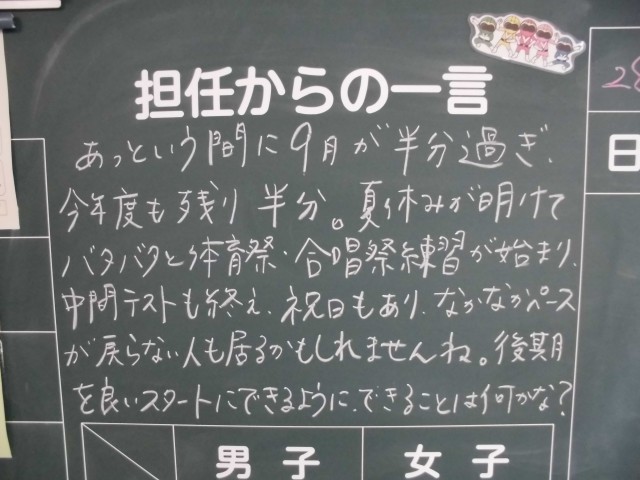 担任からの一言
あっという間に9月が半分過ぎ、
今年度も残り半分。夏休みが明けて
バタバタと体育祭・合唱祭練習が始まり、
中間テストも終え、祝日もあり、なかなかペース
が戻らない人も居るかもしれませんね。後期
を良いスタートにできるように、できることは何かな?
28
日
男子
女子